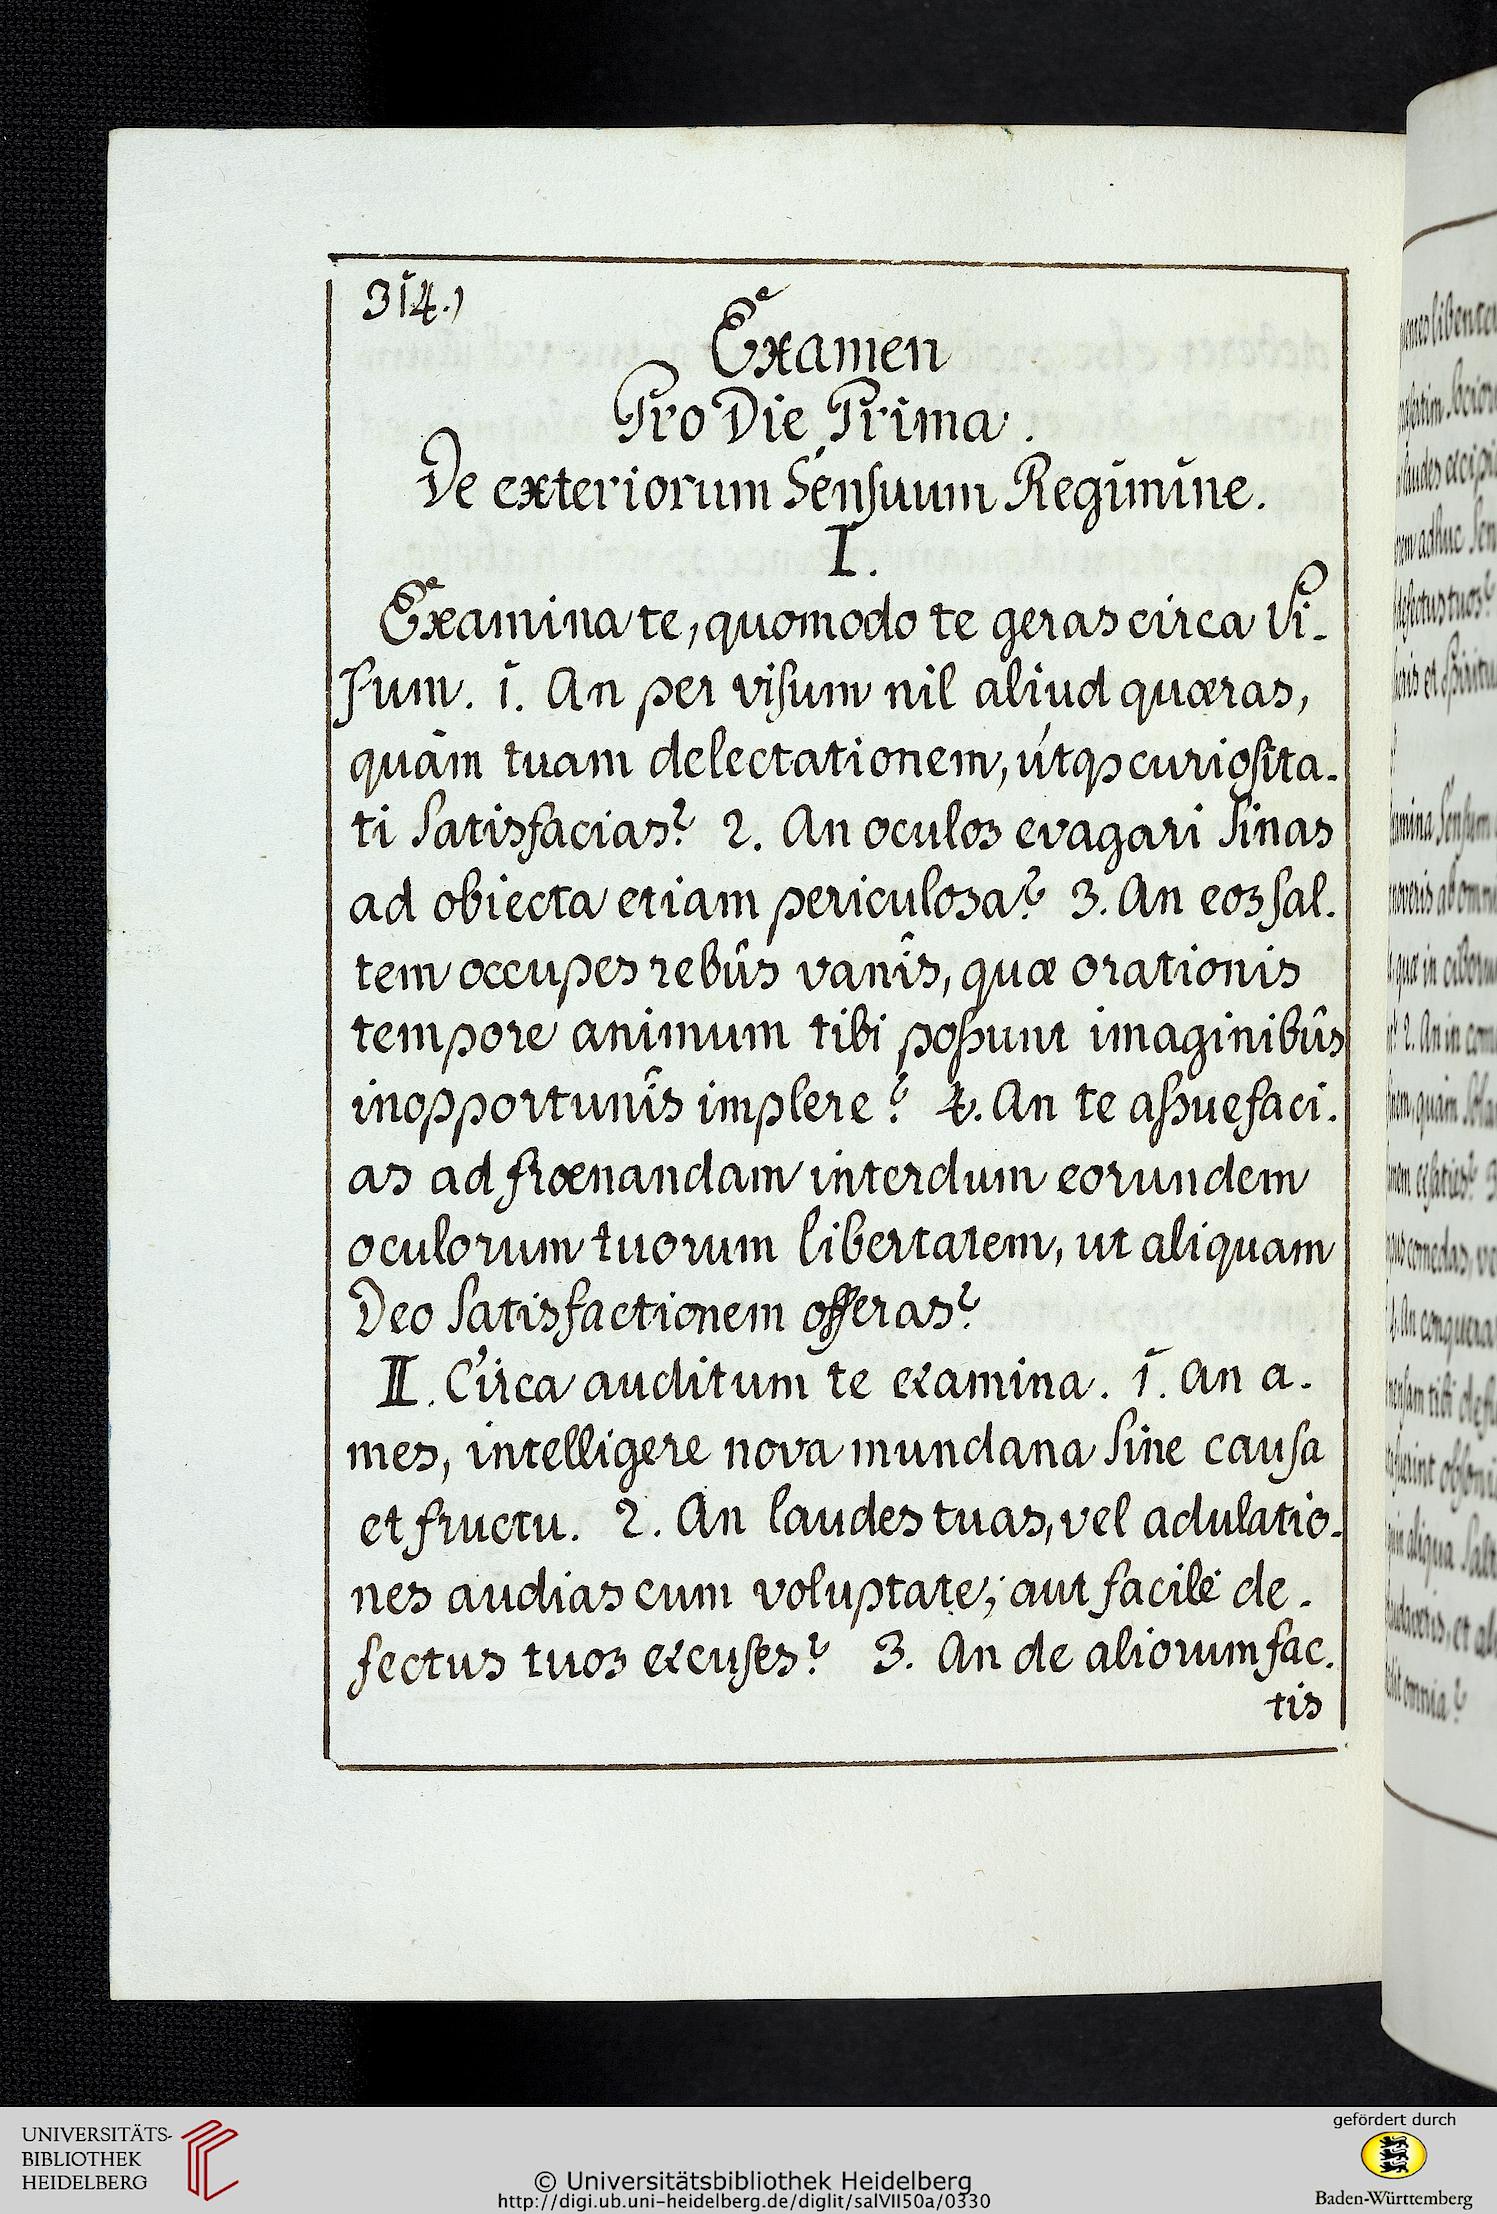 314.)
Examen
Pro Die Prima.
De exteriorum Sensuum Regimine.
I.
Examina te, quomodo te geras circa Vi-
sum. 1. An per visum nil aliud quæras,
quàm tuam delectationem, utqꝫ curiosita-
ti satisfacias? 2. An oculos evagari sinas
ad obiecta etiam periculosa? 3. An eos sal-
tem occupes rebûs vanîs, quæ orationis
tempore animum tibi poßunt imaginibûs
inopportunîs implere? 4. An te aßuefaci-
as ad frœnandam interdum eorundem
oculorum tuorum libertatem, ut aliquam
Deo satisfactionem offeras?
II. Circa auditum te examina. 1. An a-
mes, intelligere nova mundana sine causa
et fructu. 2. An laudes tuas, vel adulatio-
nes audias cum voluptate; aut facilè de-
fectus tuos excuses? 3. An de aliorum fac-
tis
UNIVERSITÄTS-
BIBLIOTHEK
HEIDELBERG
© Universitätsbibliothek Heidelberg
http://digi.ub.uni-heidelberg.de/diglit/salVII50a/0330
gefördert durch
Baden-Württemberg